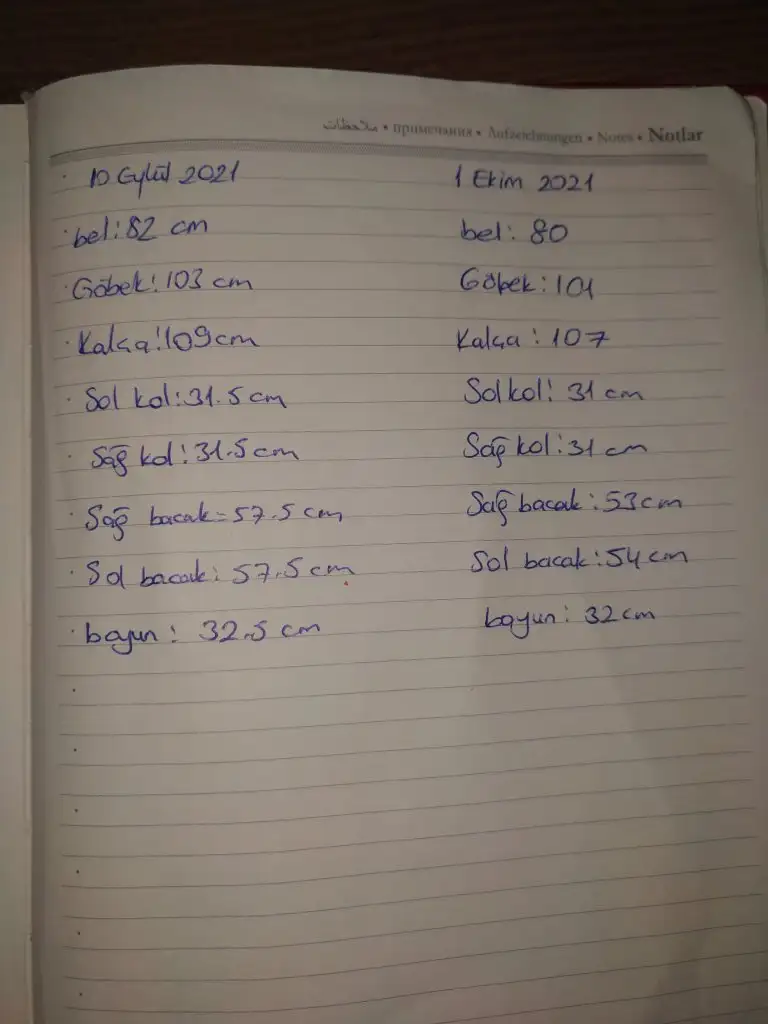 ملاحظات • примечания • Aufzeichnungen • Notes • Notlar
10 Eylül 2021 1 Ekim 2021
bel: 82 cm bel: 80
Göbek: 103 cm Göbek: 101
Kalça: 109 cm Kalça: 107
Sol kol: 31.5 cm Sol kol: 31 cm
Sağ kol: 31.5 cm Sağ kol: 31 cm
Sağ bacak= 57.5 cm Sağ bacak: 53 cm
Sol bacak: 57.5 cm Sol bacak: 54 cm
boyun: 32.5 cm boyun: 32 cm